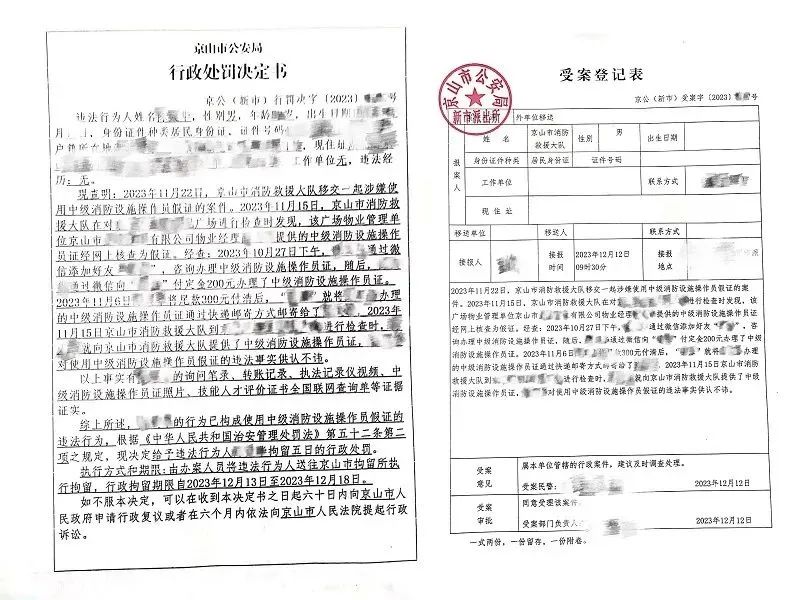 京山市公安局
行政处罚决定书
京公（新市）行罚决字〔2023〕 号
违法行为人姓名 性别男，年龄 岁，出生日期
月 日，身份证件种类居民身份证，证件号码
户籍所在地 现住址
工作单位无，违法经
历：无。
现查明：2023年11月22日，京山市消防救援大队移交一起涉嫌使
用中级消防设施操作员假证的案件。2023年11月15日，京山市消防救
援大队在对 广场进行检查时发现，该广场物业管理单
位京山市 有限公司物业经理 提供的中级消防设施操作
员证经网上核查为假证。经查：2023年10月27日下午， 通过微
信添加好友“ ”，咨询办理中级消防设施操作员证，随后，
通过微信向“ ”付定金200元办理了中级消防设施操作员证。
2023年11月6日 将尾款300元付清后，“ ”就将 办理
的中级消防设施操作员证通过快递邮寄方式邮寄给了 2023年
11月15日京山市消防救援大队到 进行检查时，
就向京山市消防救援大队提供了中级消防设施操作员证，
对使用中级消防设施操作员假证的违法事实供认不讳。
以上事实有 的询问笔录、转账记录、执法记录仪视频、中
级消防设施操作员证照片、技能人才评价证书全国联网查询单等证据
证实。
综上所述， 的行为已构成使用中级消防设施操作员假证的
违法行为，根据《中华人民共和国治安管理处罚法》第五十二条第二
项之规定，现决定给予违法行为人 拘留五日的行政处罚。
执行方式和期限：由办案人员将违法行为人送往京山市拘留所执
行拘留，行政拘留期限自2023年12月13日至2023年12月18日。
如不服本决定，可以在收到本决定书之日起六十日内向京山市人
民政府申请行政复议或者在六个月内依法向京山市人民法院提起行政
诉讼。
京山市公安局
新市派出所
受案登记表
京公（新市）受案字〔2023〕 号
外单位移送
报案人
姓 名 京山市消防救援大队 性别 男 出生日期
身份证件种类 居民身份证 证件号码
工作单位 联系方式
现 住 址
移送单位 移送人 联系方式
接报人 接报时间 2023年12月12日09时30分 接报地点
2023年11月22日，京山市消防救援大队移交一起涉嫌使用中级消防设施操作员假证的案
件。2023年11月15日，京山市消防救援大队在对 进行检查时发现，该
广场物业管理单位京山市 有限公司物业经理 提供的中级消防设施操作员
证经网上核查为假证。经查：2023年10月27日下午， 通过微信添加好友“ ”，咨
询办理中级消防设施操作员证，随后， 通过微信向“ ”付定金200元办理了中
级消防设施操作员证。2023年11月6日 300元付清后，“ ”就将 办理
的中级消防设施操作员证通过快递邮寄方式邮寄给了 2023年11月15日京山市消防
救援大队到 进行检查时， 就向京山市消防救援大队提供了中级
消防设施操作员证， 对使用中级消防设施操作员假证的违法事实供认不讳。
受案意见
属本单位管辖的行政案件，建议及时调查处理。
受案民警： 2023年12月12日
受案审批
同意受理该案件。
受案部门负责人： 2023年12月12日
一式两份，一份留存，一份附卷。